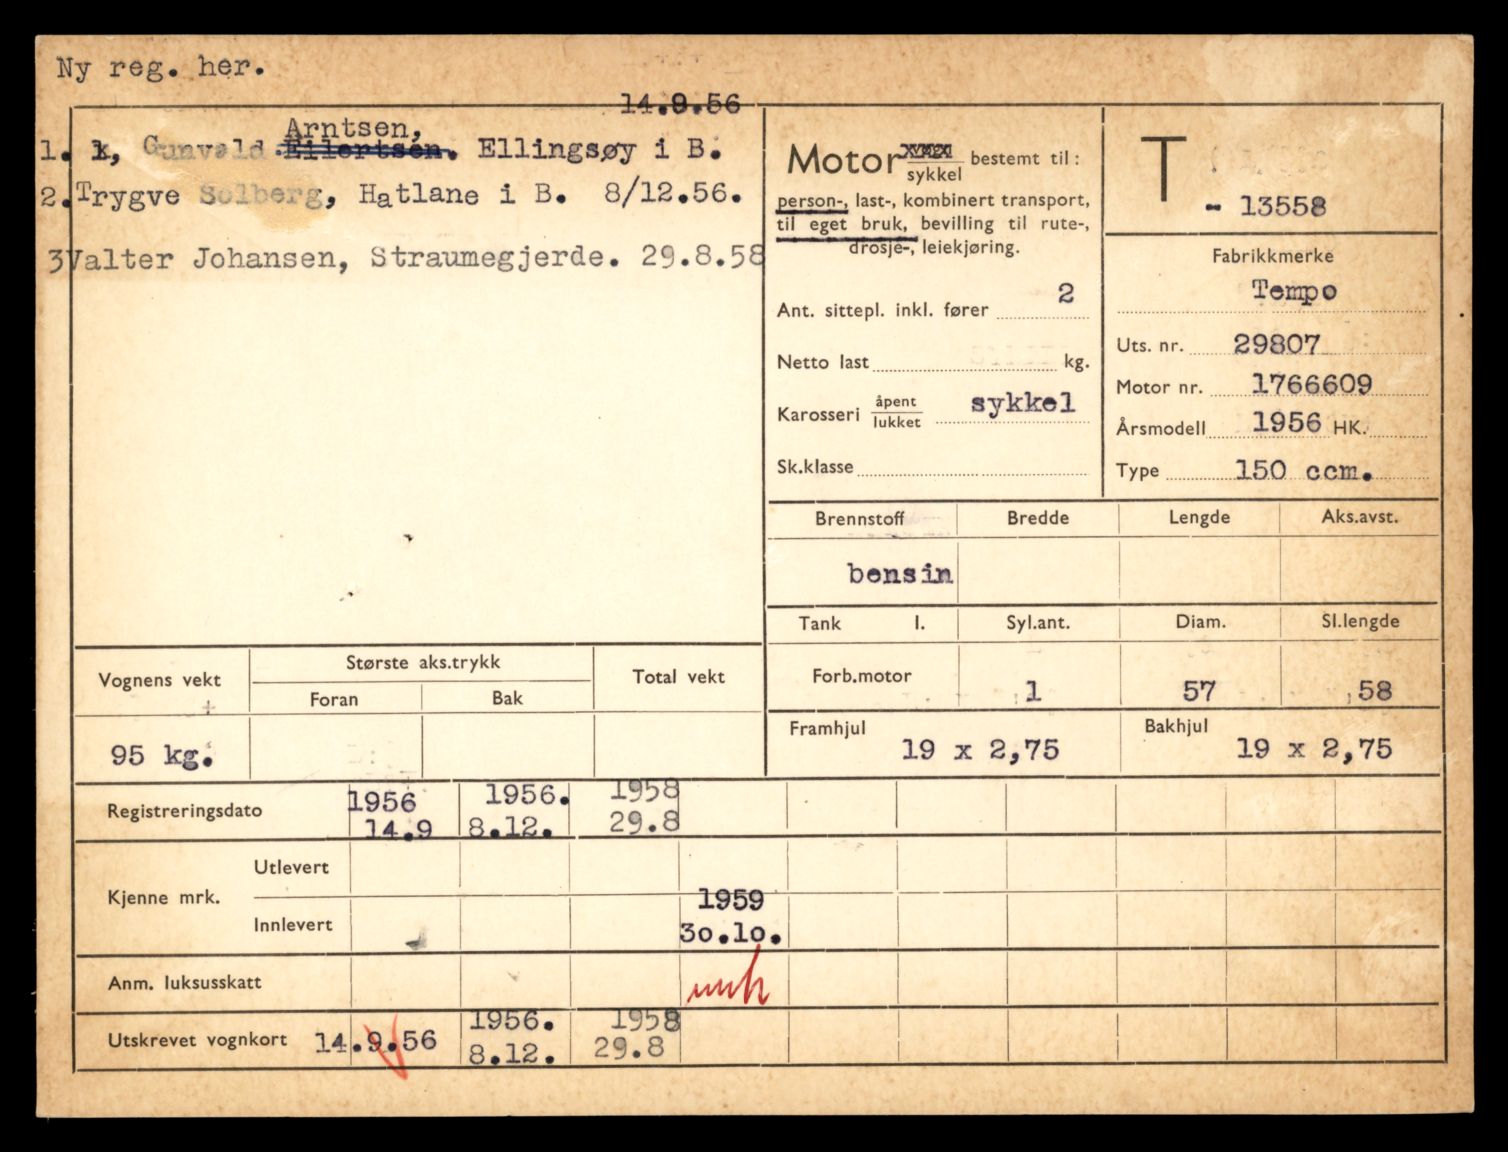 Ny reg. her.
14.9.56
Arntsen,
1. Gunvald Eilertsen. Ellingsøy i B.
2. Trygve Solberg, Hatlane i B. 8/12.56.
3 Valter Johansen, Straumegjerde. 29.8.58
Motor
sykkel
bestemt til:
person-, last-, kombinert transport,
til eget bruk, bevilling til rute-,
drosje-, leiekjøring.
Ant. sittepl. inkl. fører 2
Netto last kg.
Karosseri åpent lukket sykkel
Sk.klasse
T
- 13558
Fabrikkmerke
Tempo
Uts. nr. 29807
Motor nr. 1766609
Årsmodell 1956 HK.
Type 150 ccm.
Brennstoff Bredde Lengde Aks.avst.
bensin
Tank l. Syl.ant. Diam. Sl.lengde
Forb.motor 1 57 58
Framhjul 19 x 2,75 Bakhjul 19 x 2,75
Vognens vekt Største aks.trykk Total vekt
Foran Bak
95 kg.
Registreringsdato 1956 1956. 1958
14.9 8.12. 29.8
Kjenne mrk. Utlevert
Innlevert 1959
30.10.
Anm. luksusskatt
Utskrevet vognkort 14.9.56 1956. 1958
8.12. 29.8